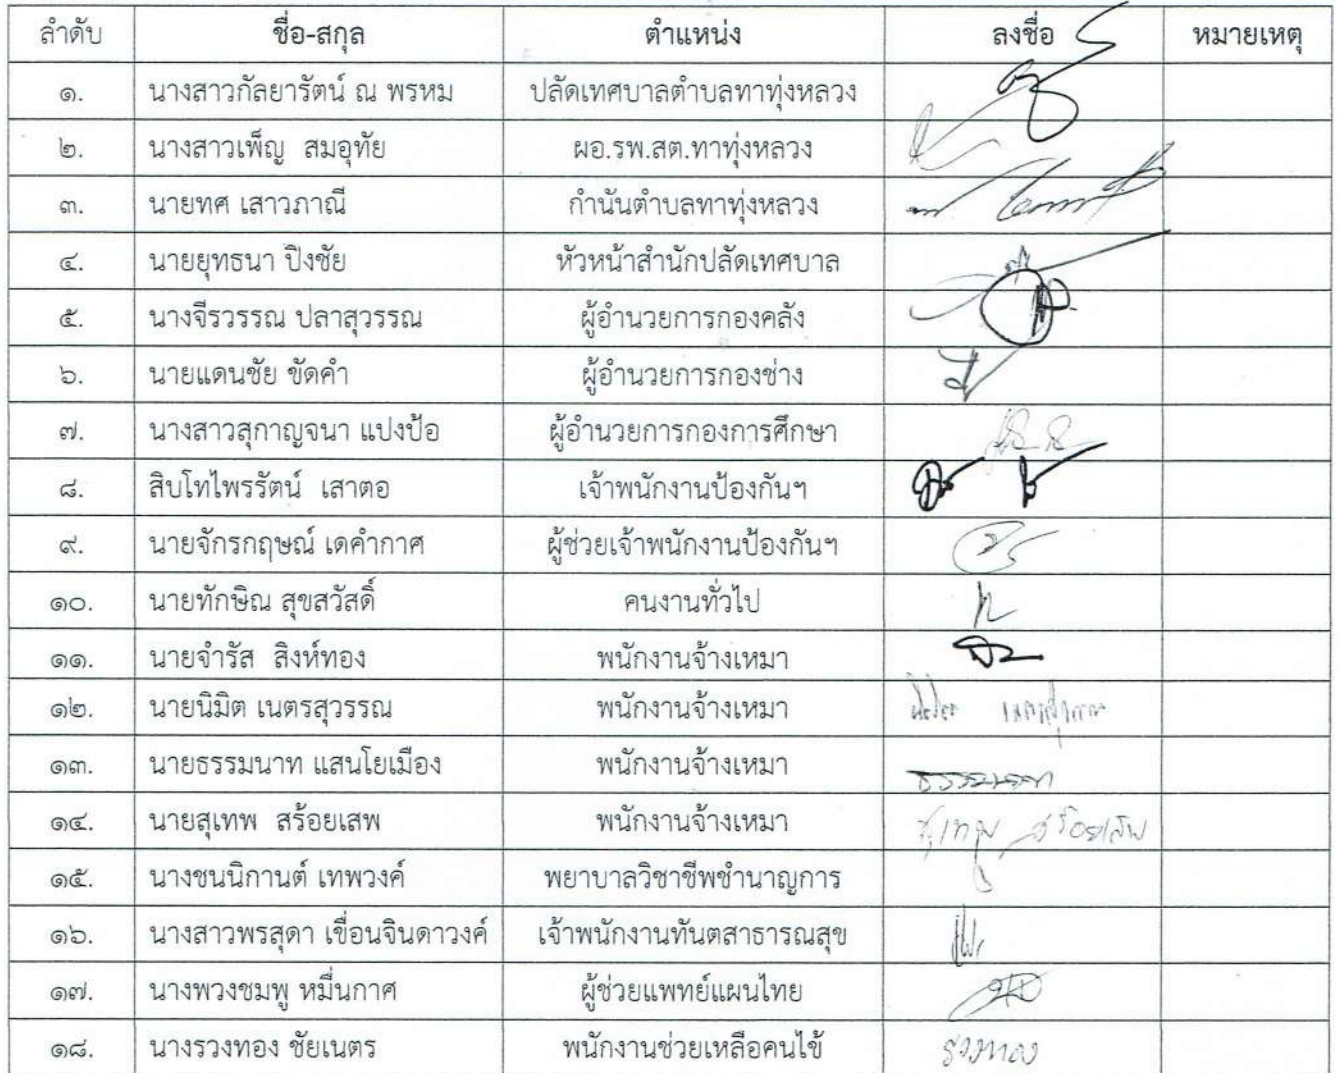 ลำดับ ชื่อ-สกุล ตำแหน่ง ลงชื่อ หมายเหตุ
๑. นางสาวกัลยารัตน์ ณ พรหม ปลัดเทศบาลตำบลทาทุ่งหลวง
๒. นางสาวเพ็ญ สมอุทัย ผอ.รพ.สต.ทาทุ่งหลวง
๓. นายทศ เสาวภาณี กำนันตำบลทาทุ่งหลวง
๔. นายยุทธนา ปิงชัย หัวหน้าสำนักปลัดเทศบาล
๕. นางจีรวรรณ ปลาสุวรรณ ผู้อำนวยการกองคลัง
๖. นายแดนชัย ขัดคำ ผู้อำนวยการกองช่าง
๗. นางสาวสุกาญจนา แปงป้อ ผู้อำนวยการกองการศึกษา
๘. สิบโทไพรรัตน์ เสาตอ เจ้าพนักงานป้องกันฯ
๙. นายจักรกฤษณ์ เดคำกาศ ผู้ช่วยเจ้าพนักงานป้องกันฯ
๑๐. นายทักษิณ สุขสวัสดิ์ คนงานทั่วไป
๑๑. นายจำรัส สิงห์ทอง พนักงานจ้างเหมา
๑๒. นายนิมิต เนตรสุวรรณ พนักงานจ้างเหมา
๑๓. นายธรรมนาท แสนโยเมือง พนักงานจ้างเหมา
๑๔. นายสุเทพ สร้อยเสพ พนักงานจ้างเหมา สุเทพ สร้อยเสพ
๑๕. นางชนนิกานต์ เทพวงค์ พยาบาลวิชาชีพชำนาญการ
๑๖. นางสาวพรสุดา เขื่อนจินดาวงค์ เจ้าพนักงานทันตสาธารณสุข
๑๗. นางพวงชมพู หมื่นกาศ ผู้ช่วยแพทย์แผนไทย
๑๘. นางรวงทอง ชัยเนตร พนักงานช่วยเหลือคนไข้ รวงทอง